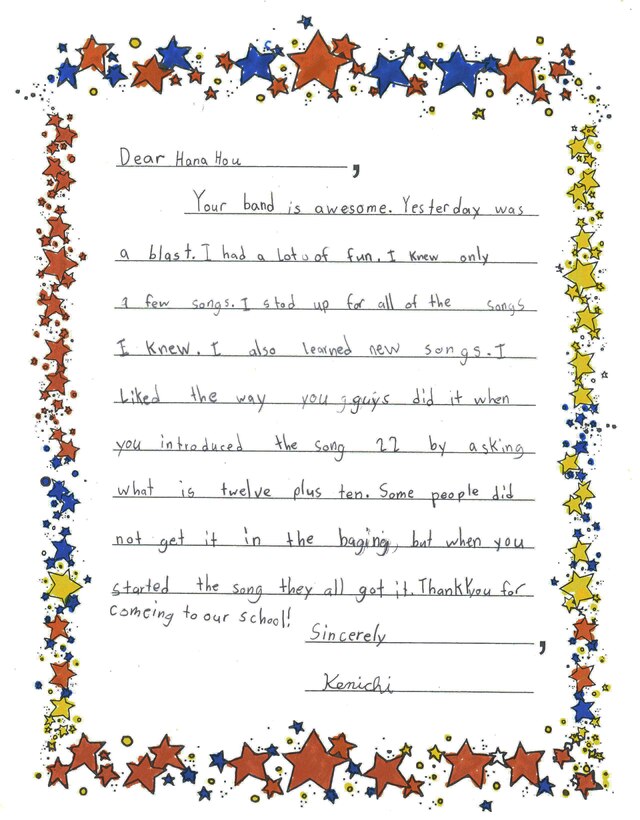 Dear Hana Hou,
Your band is awesome. Yesterday was
a blast. I had a lot of fun. I knew only
a few songs. I stod up for all of the songs
I knew. I also learned new songs. I
Liked the way you guys did it when
you introduced the song 22 by asking
what is twelve plus ten. Some people did
not get it in the baging, but when you
started the song they all got it. Thank you for
comeing to our school!
Sincerely,
Kenichi